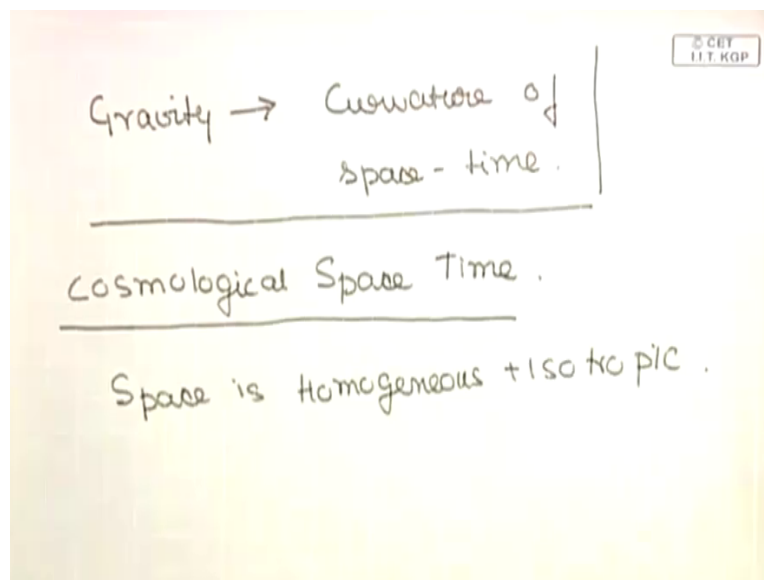 © CET
I.I.T. KGP
Gravity → Curvature of
space-time.
Cosmological Space Time.
Space is Homogeneous + Isotropic.